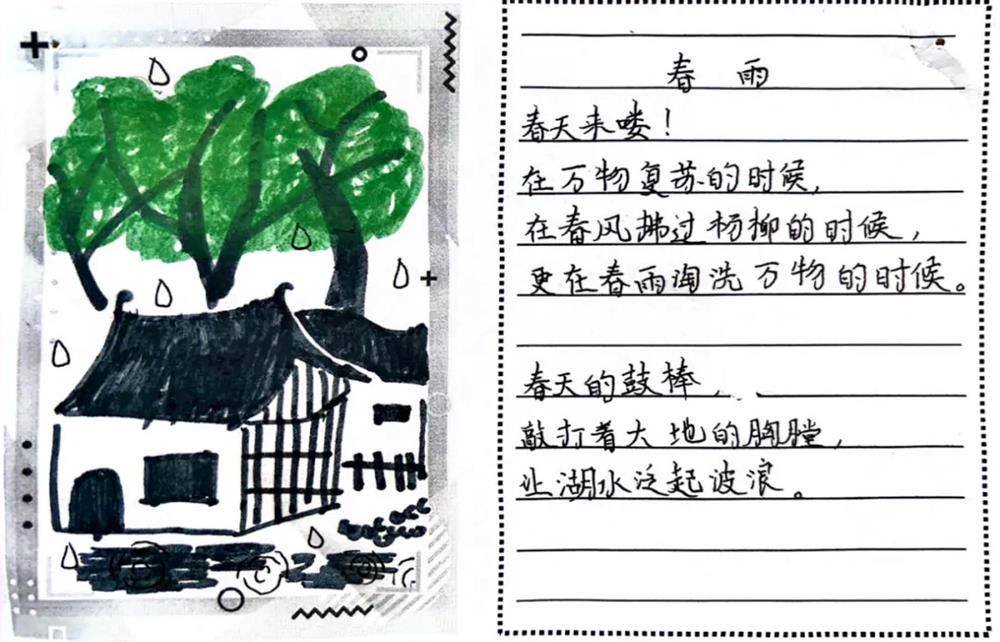 春雨
春天来喽!
在万物复苏的时候,
在春风拂过杨柳的时候,
更在春雨淘洗万物的时候。
春天的鼓棒,
敲打着大地的胸膛,
让湖水泛起波浪。